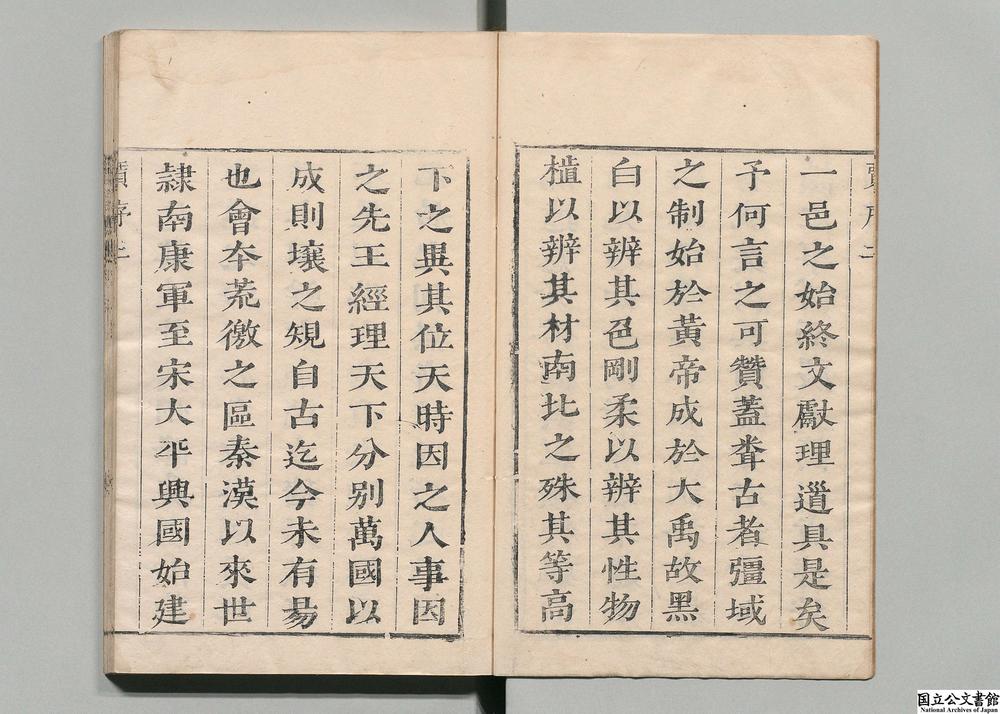 一邑之始終文獻理道具是矣
予何言之可贊蓋聞古者彊域
之制始於黃帝成於大禹故黑
白以辨其色剛柔以辨其性物
植以辨其材南北之殊其等高
下之異其位天時因之人事因
之先王經理天下分别萬國以
成則壤之規自古迄今未有易
也會本荒徼之區秦漢以來世
隷南康軍至宋大平興國始建
国立公文書館
National Archives of Japan